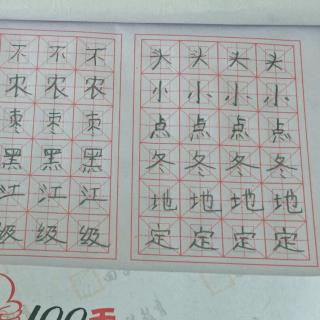 不不不 头头头头
农农农 小小小小
枣枣枣 点点点点
黑黑黑 冬冬冬冬
江江江 地地地地
级级级 定定定定
100天